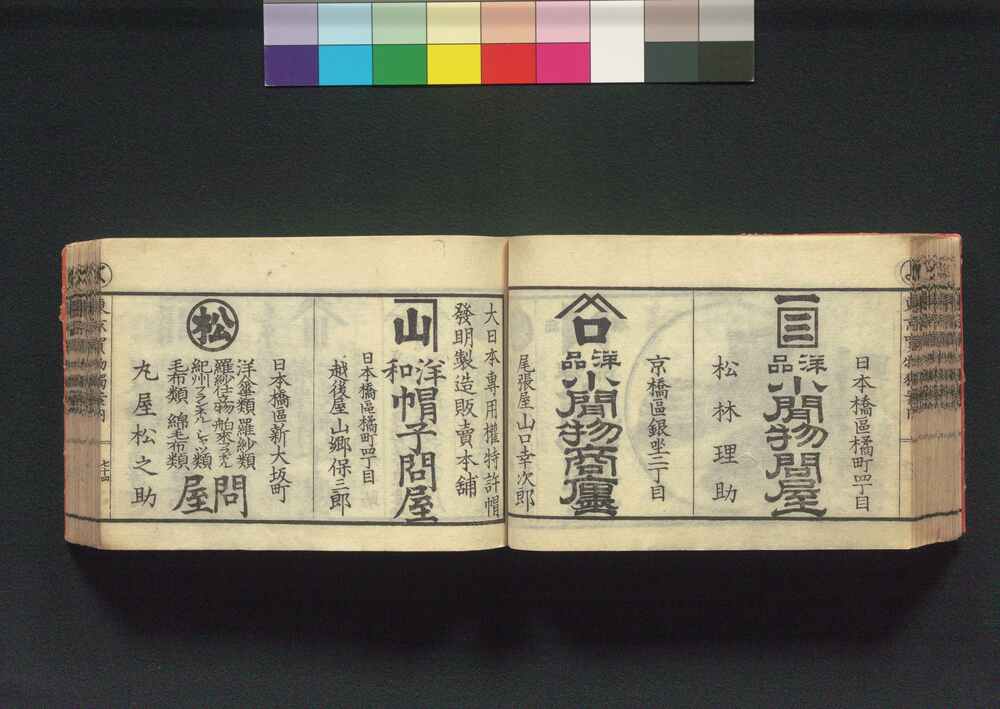 日本橋區橘町四丁目
三
洋品
小間物問屋
松林理助
京橋區銀坐二丁目
口
洋品
小間物商
尾張屋山口幸次郎
大日本專用權特許帽
發明製造販賣本舗
山
洋和
帽子問屋
日本橋區橘町四丁目
越後屋山郷保三郎
日本橋區新大坂町
松
洋傘類羅紗類
毛布類 綿毛布類
問屋
丸屋松之助
七十四